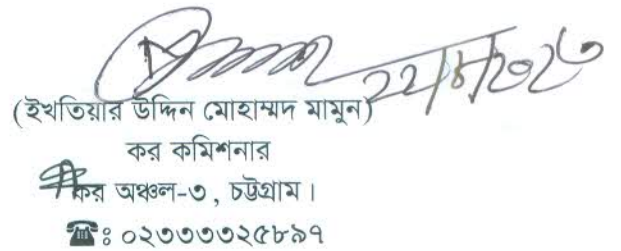 ২২/৮/২০২৩
(ইখতিয়ার উদ্দিন মোহাম্মদ মামুন)
কর কমিশনার
কর অঞ্চল-৩, চট্টগ্রাম।
☎ঃ ০২৩৩৩৩২৫৮৯৭